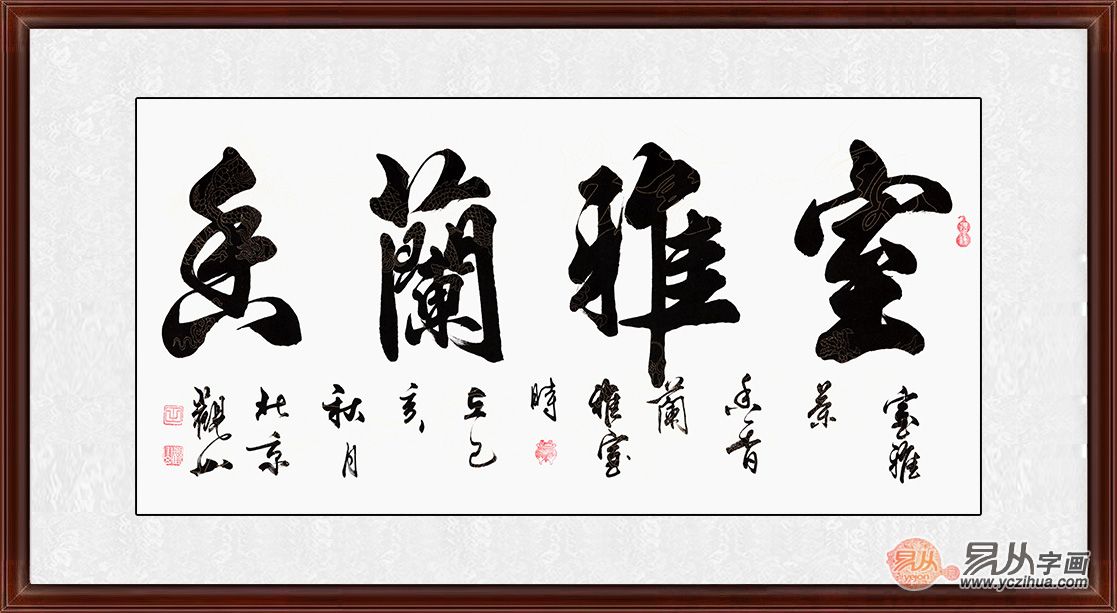 室雅蘭香
室雅
香
蘭
雅室
時
在己
亥
秋月
北京
觀山
易从
易从字画
www.yczihua.com